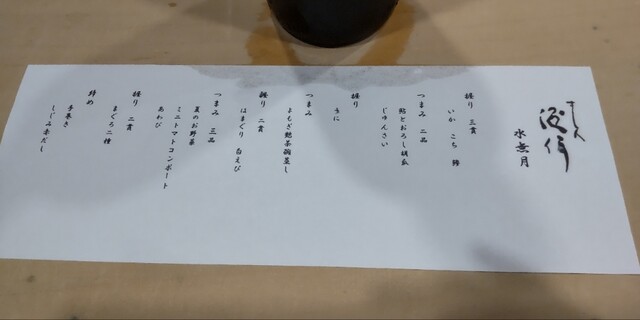 水無月
握り 三貫
いか こち 鯵
つまみ 二品
鮎とおろし胡瓜
じゅんさい
握り
うに
つまみ
よもぎ麩茶碗蒸し
握り 二貫
はまぐり 白えび
つまみ 三品
夏のお野菜
ミニトマトコンポート
あわび
握り 二貫
まぐろ二種
締め
手巻き
しじみ赤だし